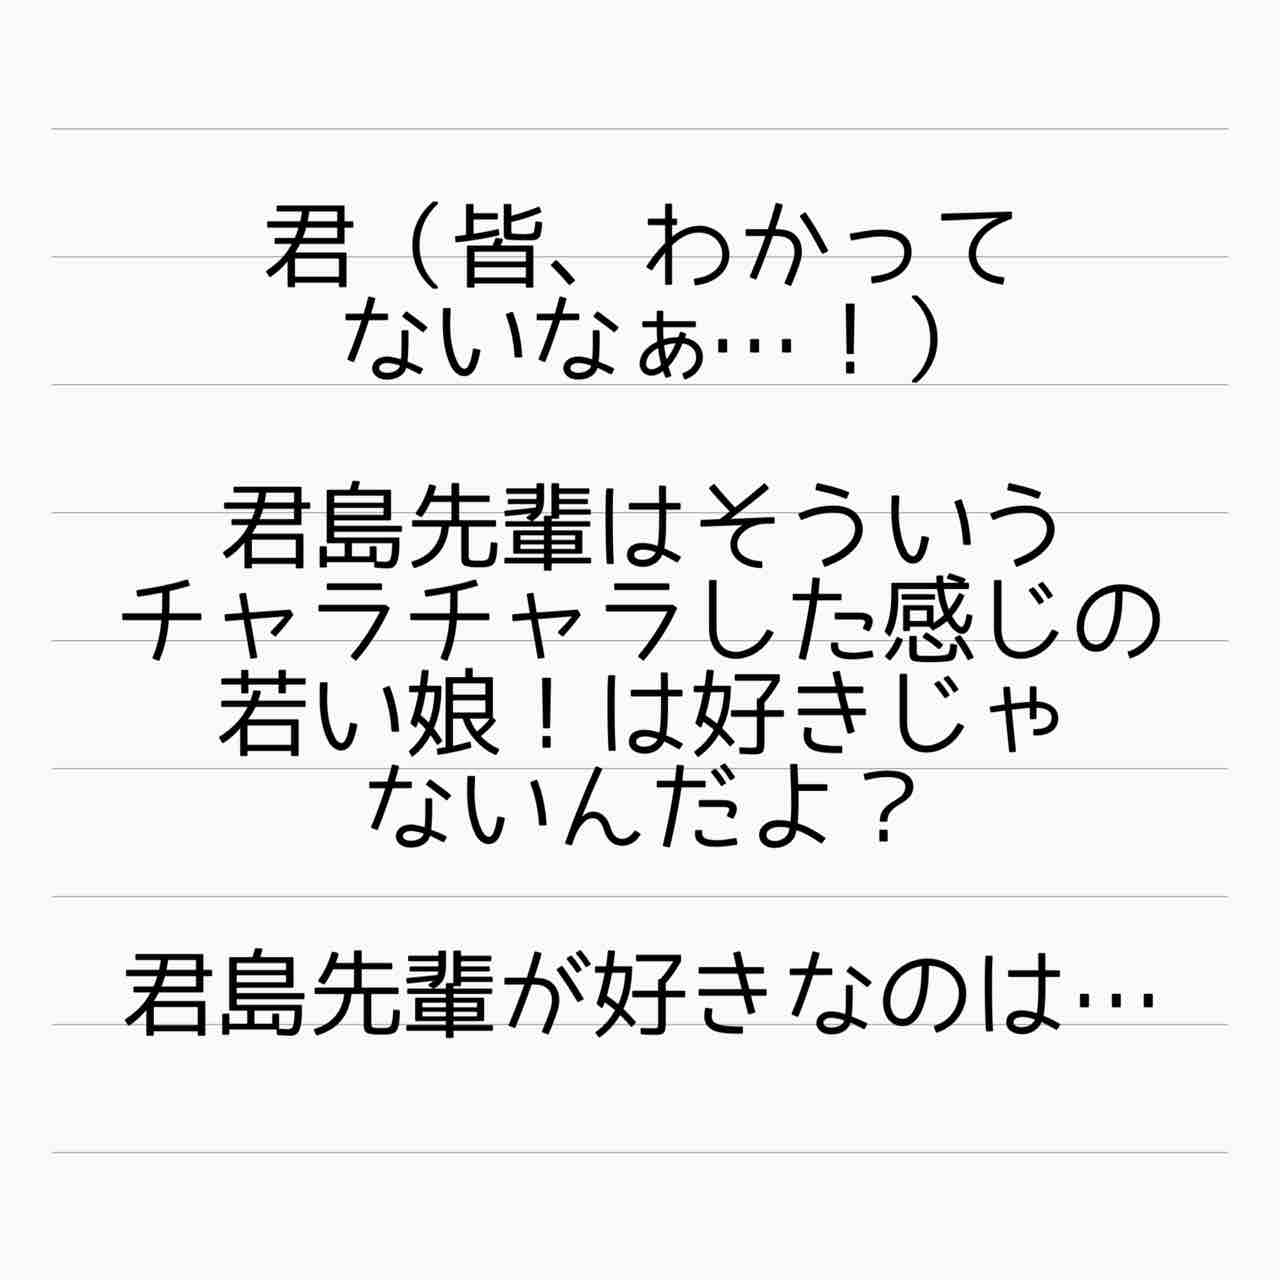 君（皆、わかって
ないなぁ…！）
君島先輩はそういう
チャラチャラした感じの
若い娘！は好きじゃ
ないんだよ？
君島先輩が好きなのは…